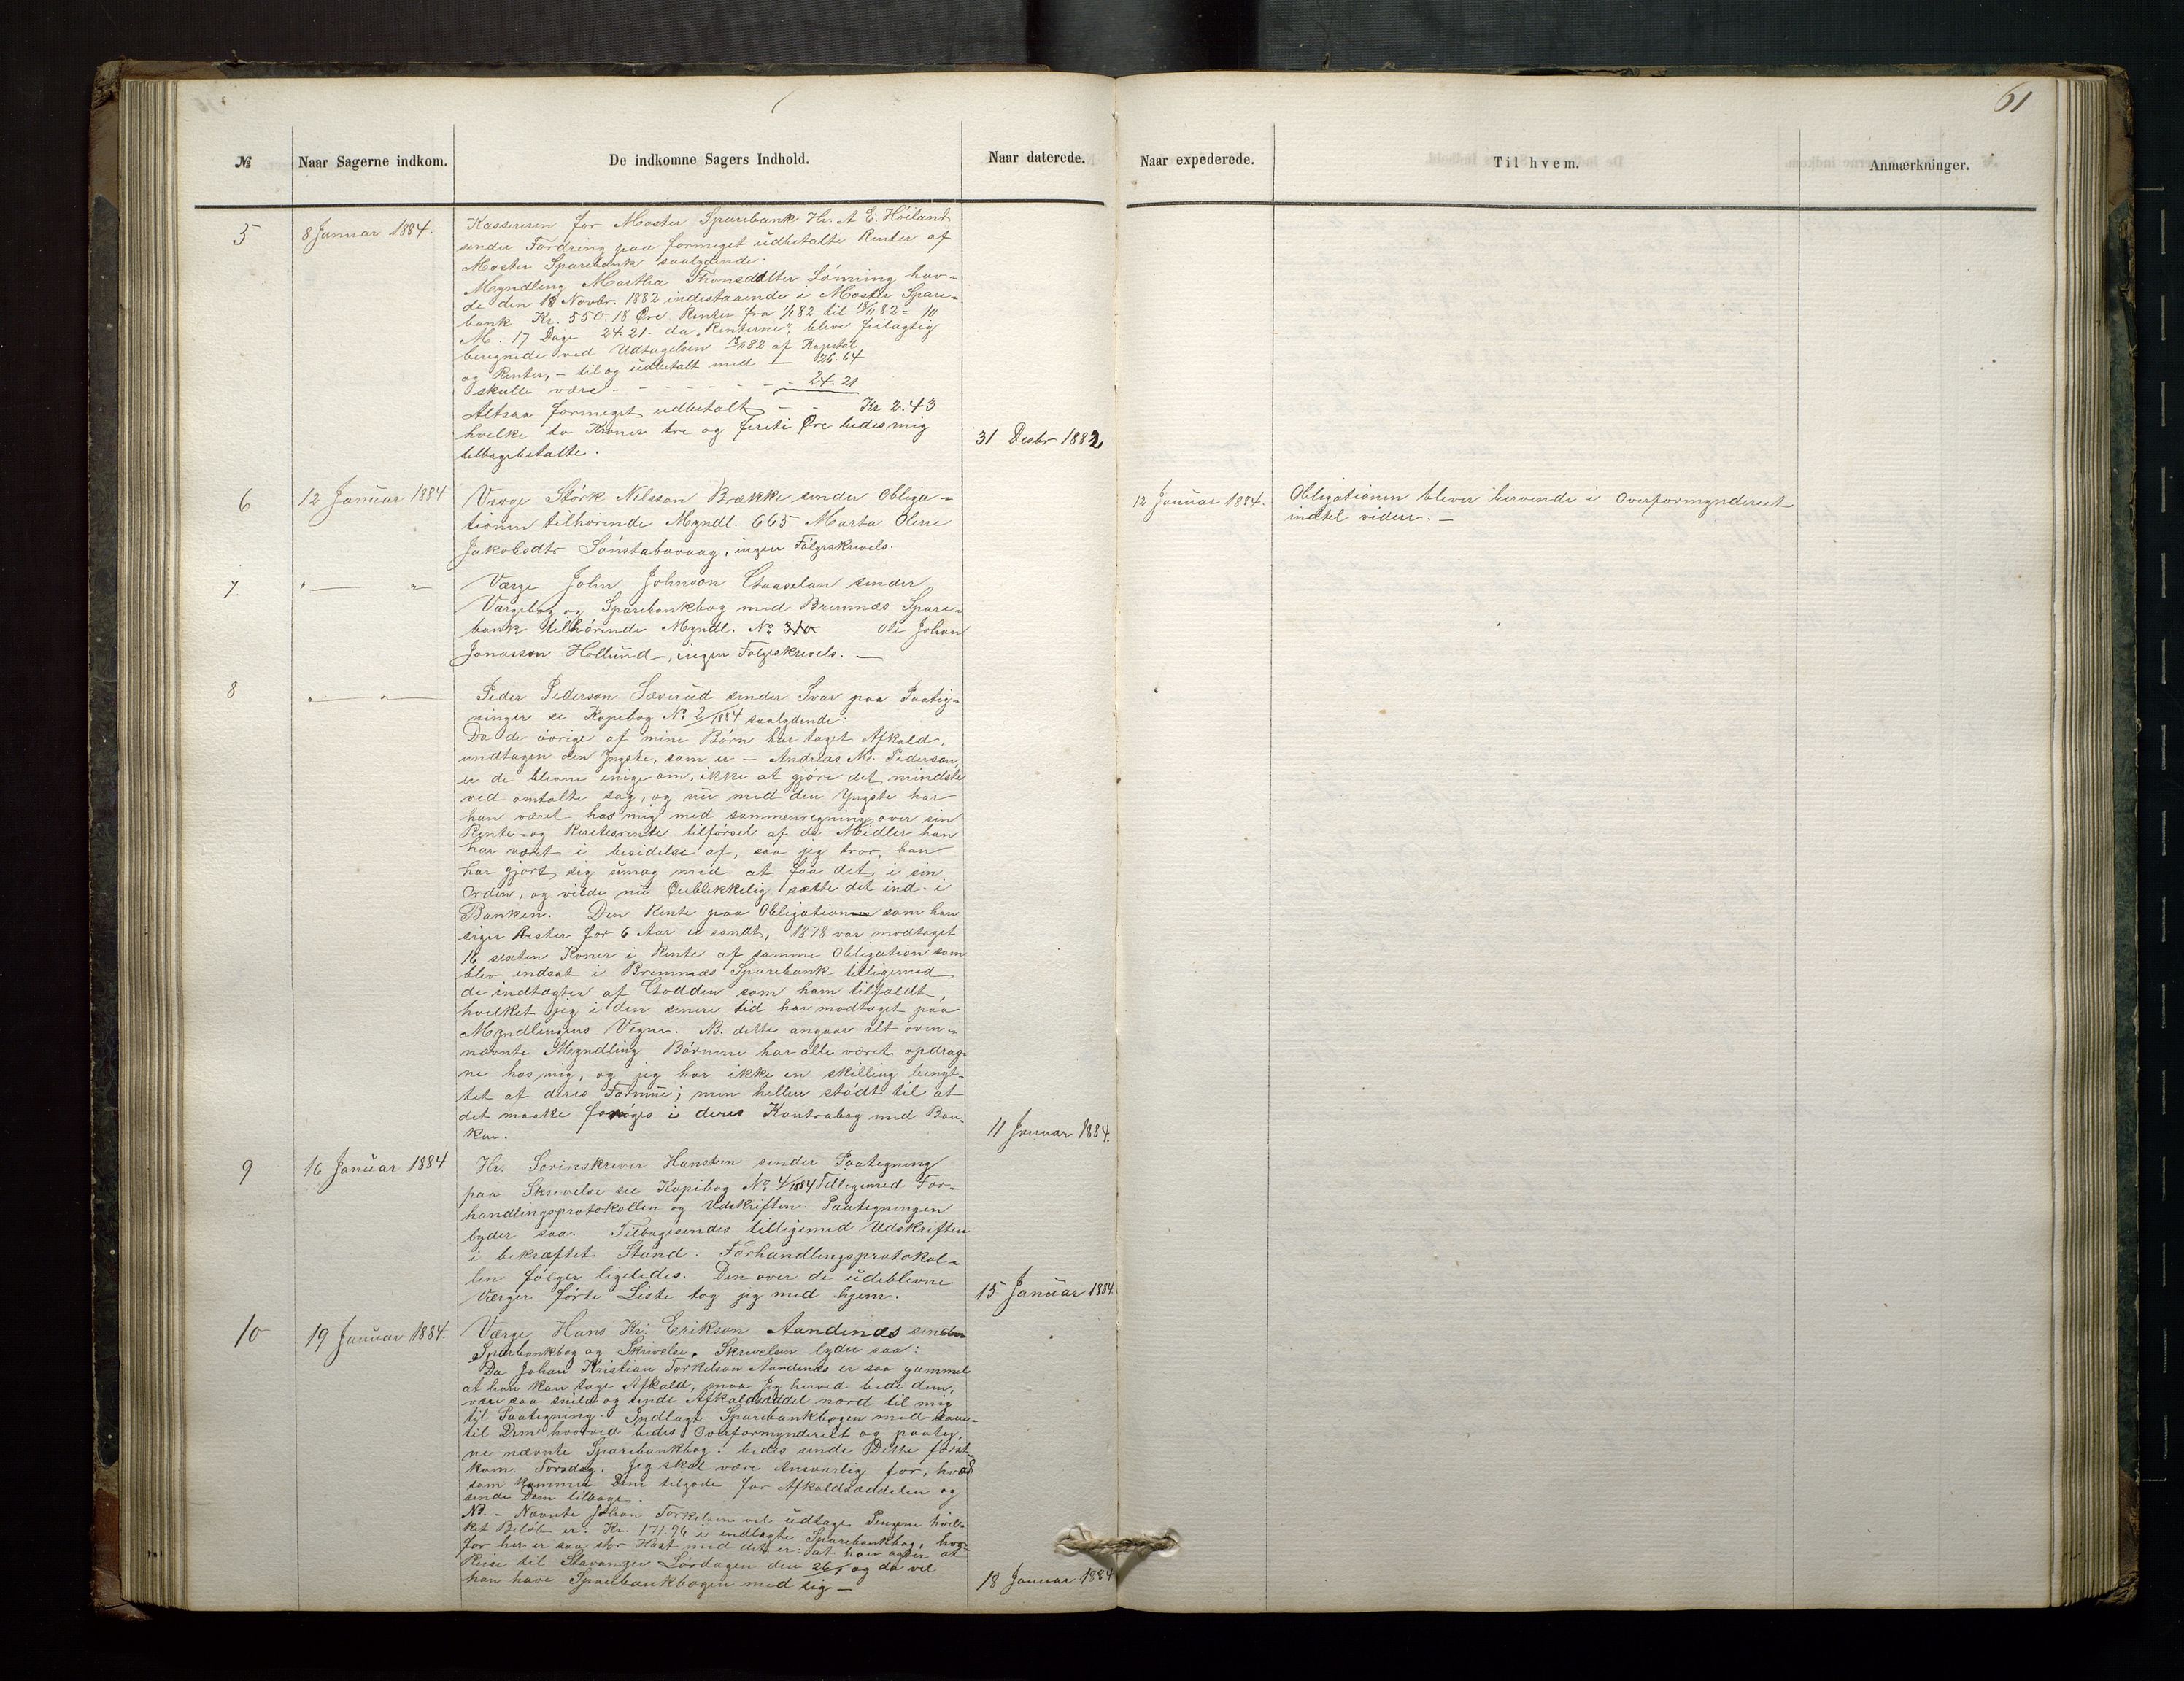 61
№ Naar Sagerne indkom. De indkomne Sagers Indhold. Naar daterede. Naar expederede. Til hvem. Anmærkninger.
5 8 Januar 1884. Kassereren for Moster Sparebank Hr. A E. Höiland
sender Fordring paa formeget udbetalte Renter af
Moster Sparebank saalydende:
Myndling Martha Thonsdatter Lönning hav-
de den 18 Novbr. 1882 indestaaende i Moster Spare-
bank Kr. 550.18 Øre Renter fra 1/1 82 til 18/11 82 = 10
M. 17 Dage 24.21. da "Renterne" bleve feilagtig
beregnede ved Udtagelsen 18/11 82 af Kapital
og Renter, - til og udbetalt med - 26.64
skulle være - - - - - - - 24.21
Altsaa formeget udbetalt - - Kr 2.43
hvilke to Kroner tre og fireti Øre bedes mig
tilbagebetalte. 31 Desbr 1882
6 12 Januar 1884 Værge Störk Nilsson Brække sender Obliga-
tionen tilhörende Myndl. 665 Marta Oline
Jakobsdtr Sönstabovaag, ingen Fölgeskrivels.
12 Januar 1884. Obligationen bliver beroende i Overformynderiet
indtil videre. -
7. " — " Værge John Johnson Gaaselan sender
Værgebog og Sparebankbog med Bremnæs Spare-
bank tilhörende Myndl. No Ole Johan
Jonasson Hollund, ingen Fölgeskrivels. —
8 " — " — Peder Pederson Sæverud sender Svar paa Paateg-
ninger se Kopibog No 2/1884 saalydende:
Da de övrige af mine Börn har taget Afkald,
undtagen den Yngste, som er - Andreas M. Pederson,
er de blevne enige om, ikke at gjöre det mindste
ved omtalte sag, og nu med den Yngste har
han været hos mig med sammenregning over sin
Rente- og Rentesrente tilförsel af de Midler han
har været i besidelse af, saa jeg tror, han
har gjort sig umag med at faa det i sin
Orden, og vilde nu Öieblikkelig sætte det ind i
Banken. Den Rente paa Obligation som han
siger Rester for 6 Aar er sandt, 1878 var modtaget
16 sexten Kroner i Rente af samme Obligation som
blev indsat i Bremnæs Sparebank tilligemed
de indtægter af Godden som ham tilfaldt,
hvilket jeg i den senere tid har modtaget paa
Myndlingens Vegne. NB. dette angaar alt oven-
nævnte Myndling Börnene har alle været opdrag-
ne hos mig, og jeg har ikke en skilling benyt-
tet af deres Formue; men heller stödt til at
det maatte foröges i deres Kontrabog med Ban-
ken. 11 Januar 1884.
9 16 Januar 1884 Hr. Sorinskriver Hansteen sender Paategning
paa Skrivelse see Kopibog No 4/1884 Tilligemed For-
handlingsprotokollen og Udskriften. Paategningen
lyder saa. Tilbagesendes tilligemed Udskriften
i bekræftet Stand. Forhandlingsprotokol-
len fölger ligeledes. Den over de udeblevne
Værger förte Liste tog jeg med hjem. 15 Januar 1884
10 19 Januar 1884. Værge Hans Kr. Erikson Aandenæs sender
Sparbankbog og Skrivelse. Skrivelsen lyder saa:
Da Johan Kristian Torkelson Aandenæs er saa gammel
at han kan tage Afkald, maa Jeg herved bede dem,
være saa snild og sende Afkaldsæddel nord til mig
til Paategning. Indlagt Sparebankbogen med sam-
til Dem hvorved bedes Overformynderiet og paateg-
ne nævnte Sparebankbog. bedes sende Dette först-
kom. Torsdag. Jeg skal være Ansvarlig for, hvad
som kommer Dem tilgode for Afkaldsæddelen og
sende Dem tilbage.
NB. - Nævnte Johan Torkelsen vil udtage Pengene hvil-
ket Belöb er: Kr. 171.96 i indlagte Sparebankbog, hvor-
for her er saa stor Hast med det er: at han agter at
Reise til Stavanger Lördagen den 26/1 og da vil
han have Sparebankbogen med sig — 18 Januar 1884